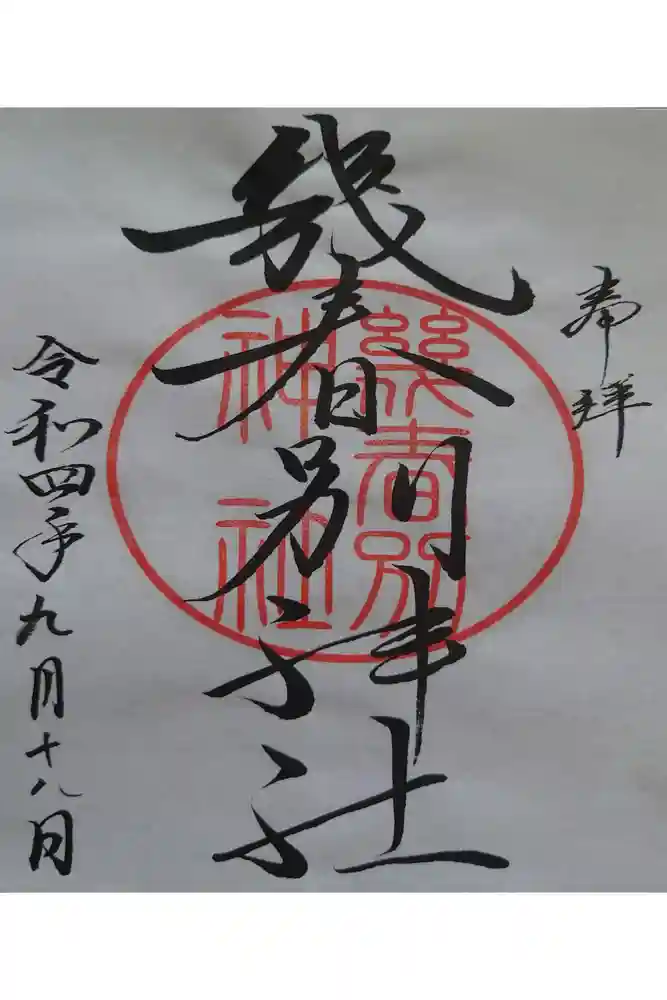 奉拝
幾春別神社
幾春別
神社
令和四年九月十八日